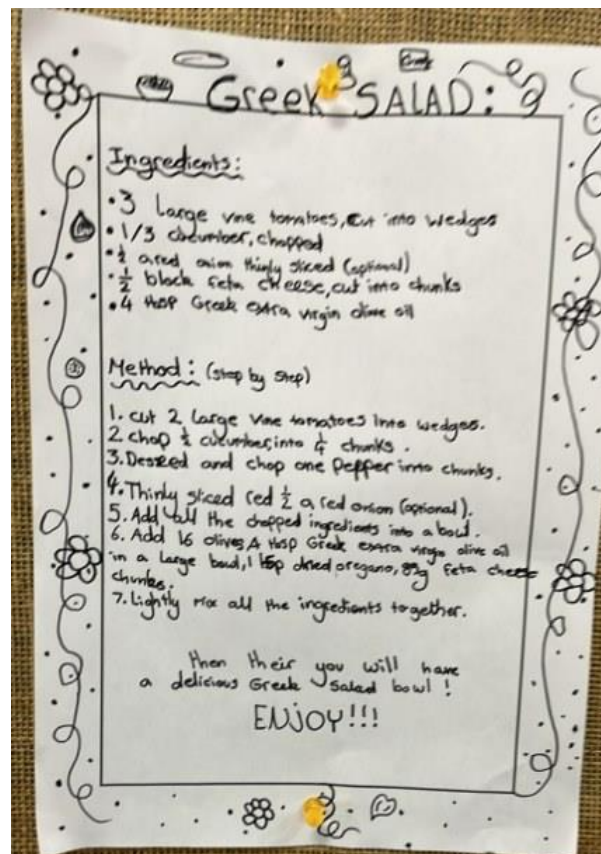 Greek SALAD:
Ingredients:
• 3 Large vine tomatoes, cut into wedges
• 1/3 cucumber, chopped
• ½ a red onion thinly sliced (optional)
• ½ block feta cheese, cut into chunks
• 4 tbsp Greek extra virgin olive oil
Method: (step by step)
1. cut 2 large vine tomatoes into wedges.
2. chop ½ cucumber, into ¼ chunks.
3. Deseed and chop one Pepper into chunks.
4. Thinly sliced red ½ a red onion (optional).
5. Add all the chopped ingredients into a bowl.
6. Add 16 olives, 4 tbsp Greek extra virgin olive oil
in a large bowl, 1 tsp dried oregano, feta cheese
chunks.
7. Lightly mix all the ingredients together.
then their you will have
a delicious Greek Salad bowl!
ENJOY!!!